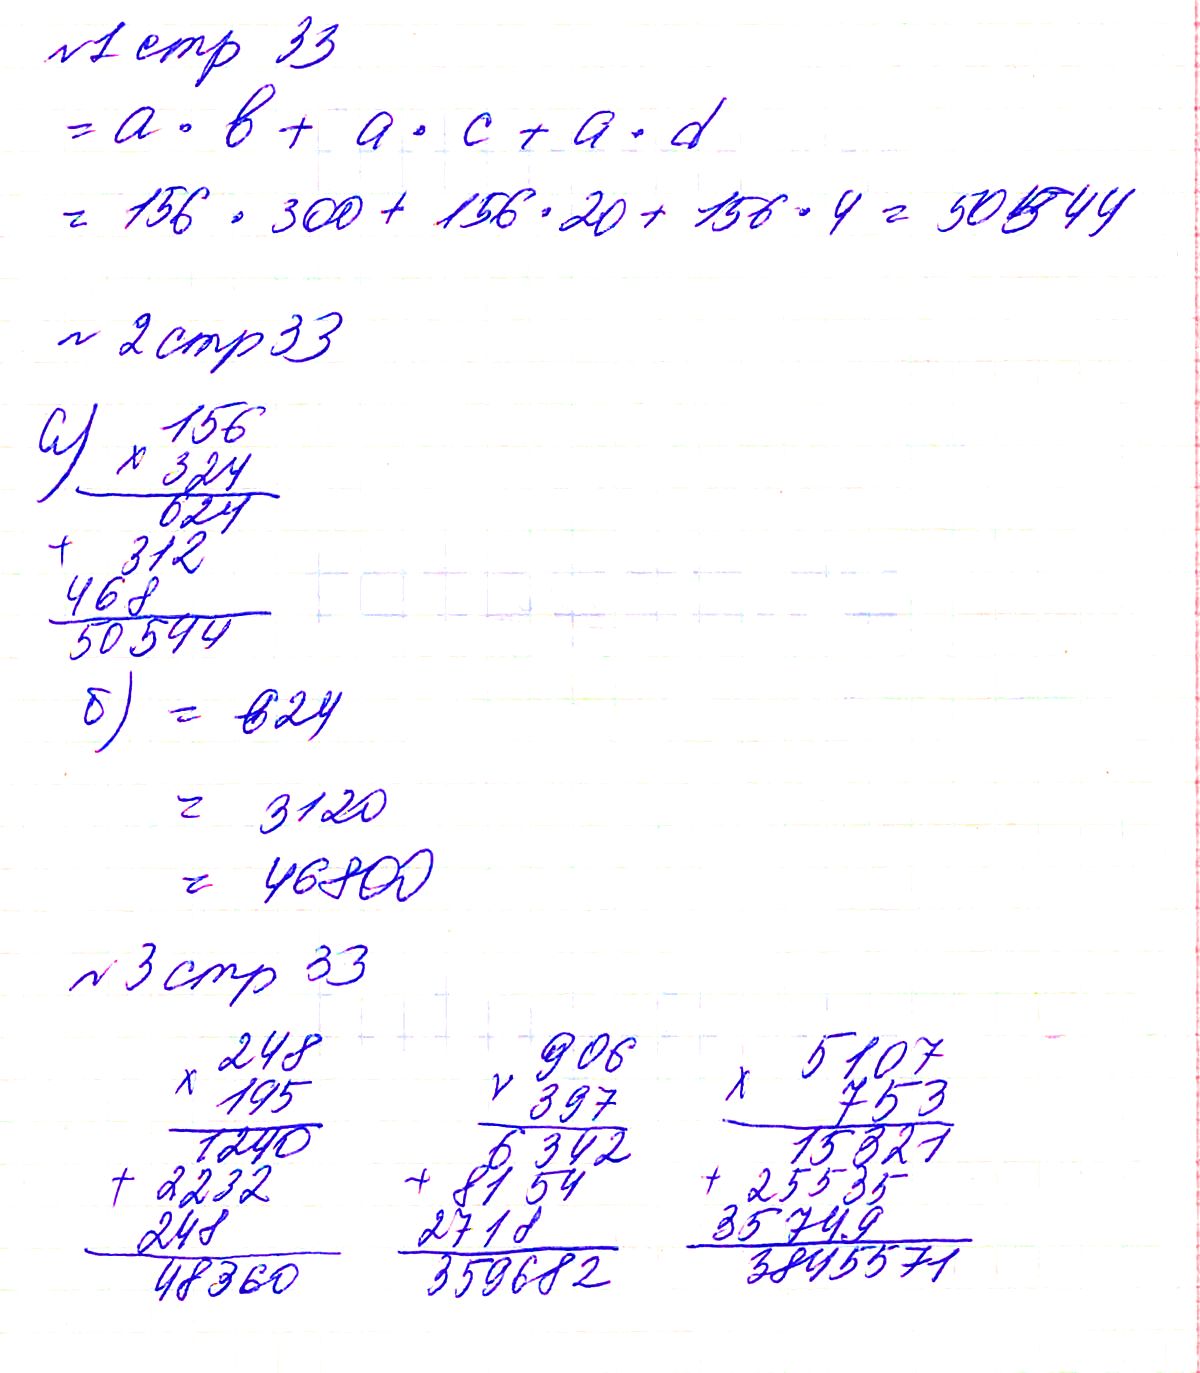 №1 стр 33
= a · b + a · c + a · d
= 156 · 300 + 156 · 20 + 156 · 4 = 50544
№ 2 стр 33
а) 156
× 324
624
+ 312
468
50544
б) = 624
= 3120
= 46800
№ 3 стр 33
× 248 × 906 × 5107
195 397 753
1240 6342 15321
+ 2232 + 8154 + 25535
248 2718 35749
48360 359682 3845571